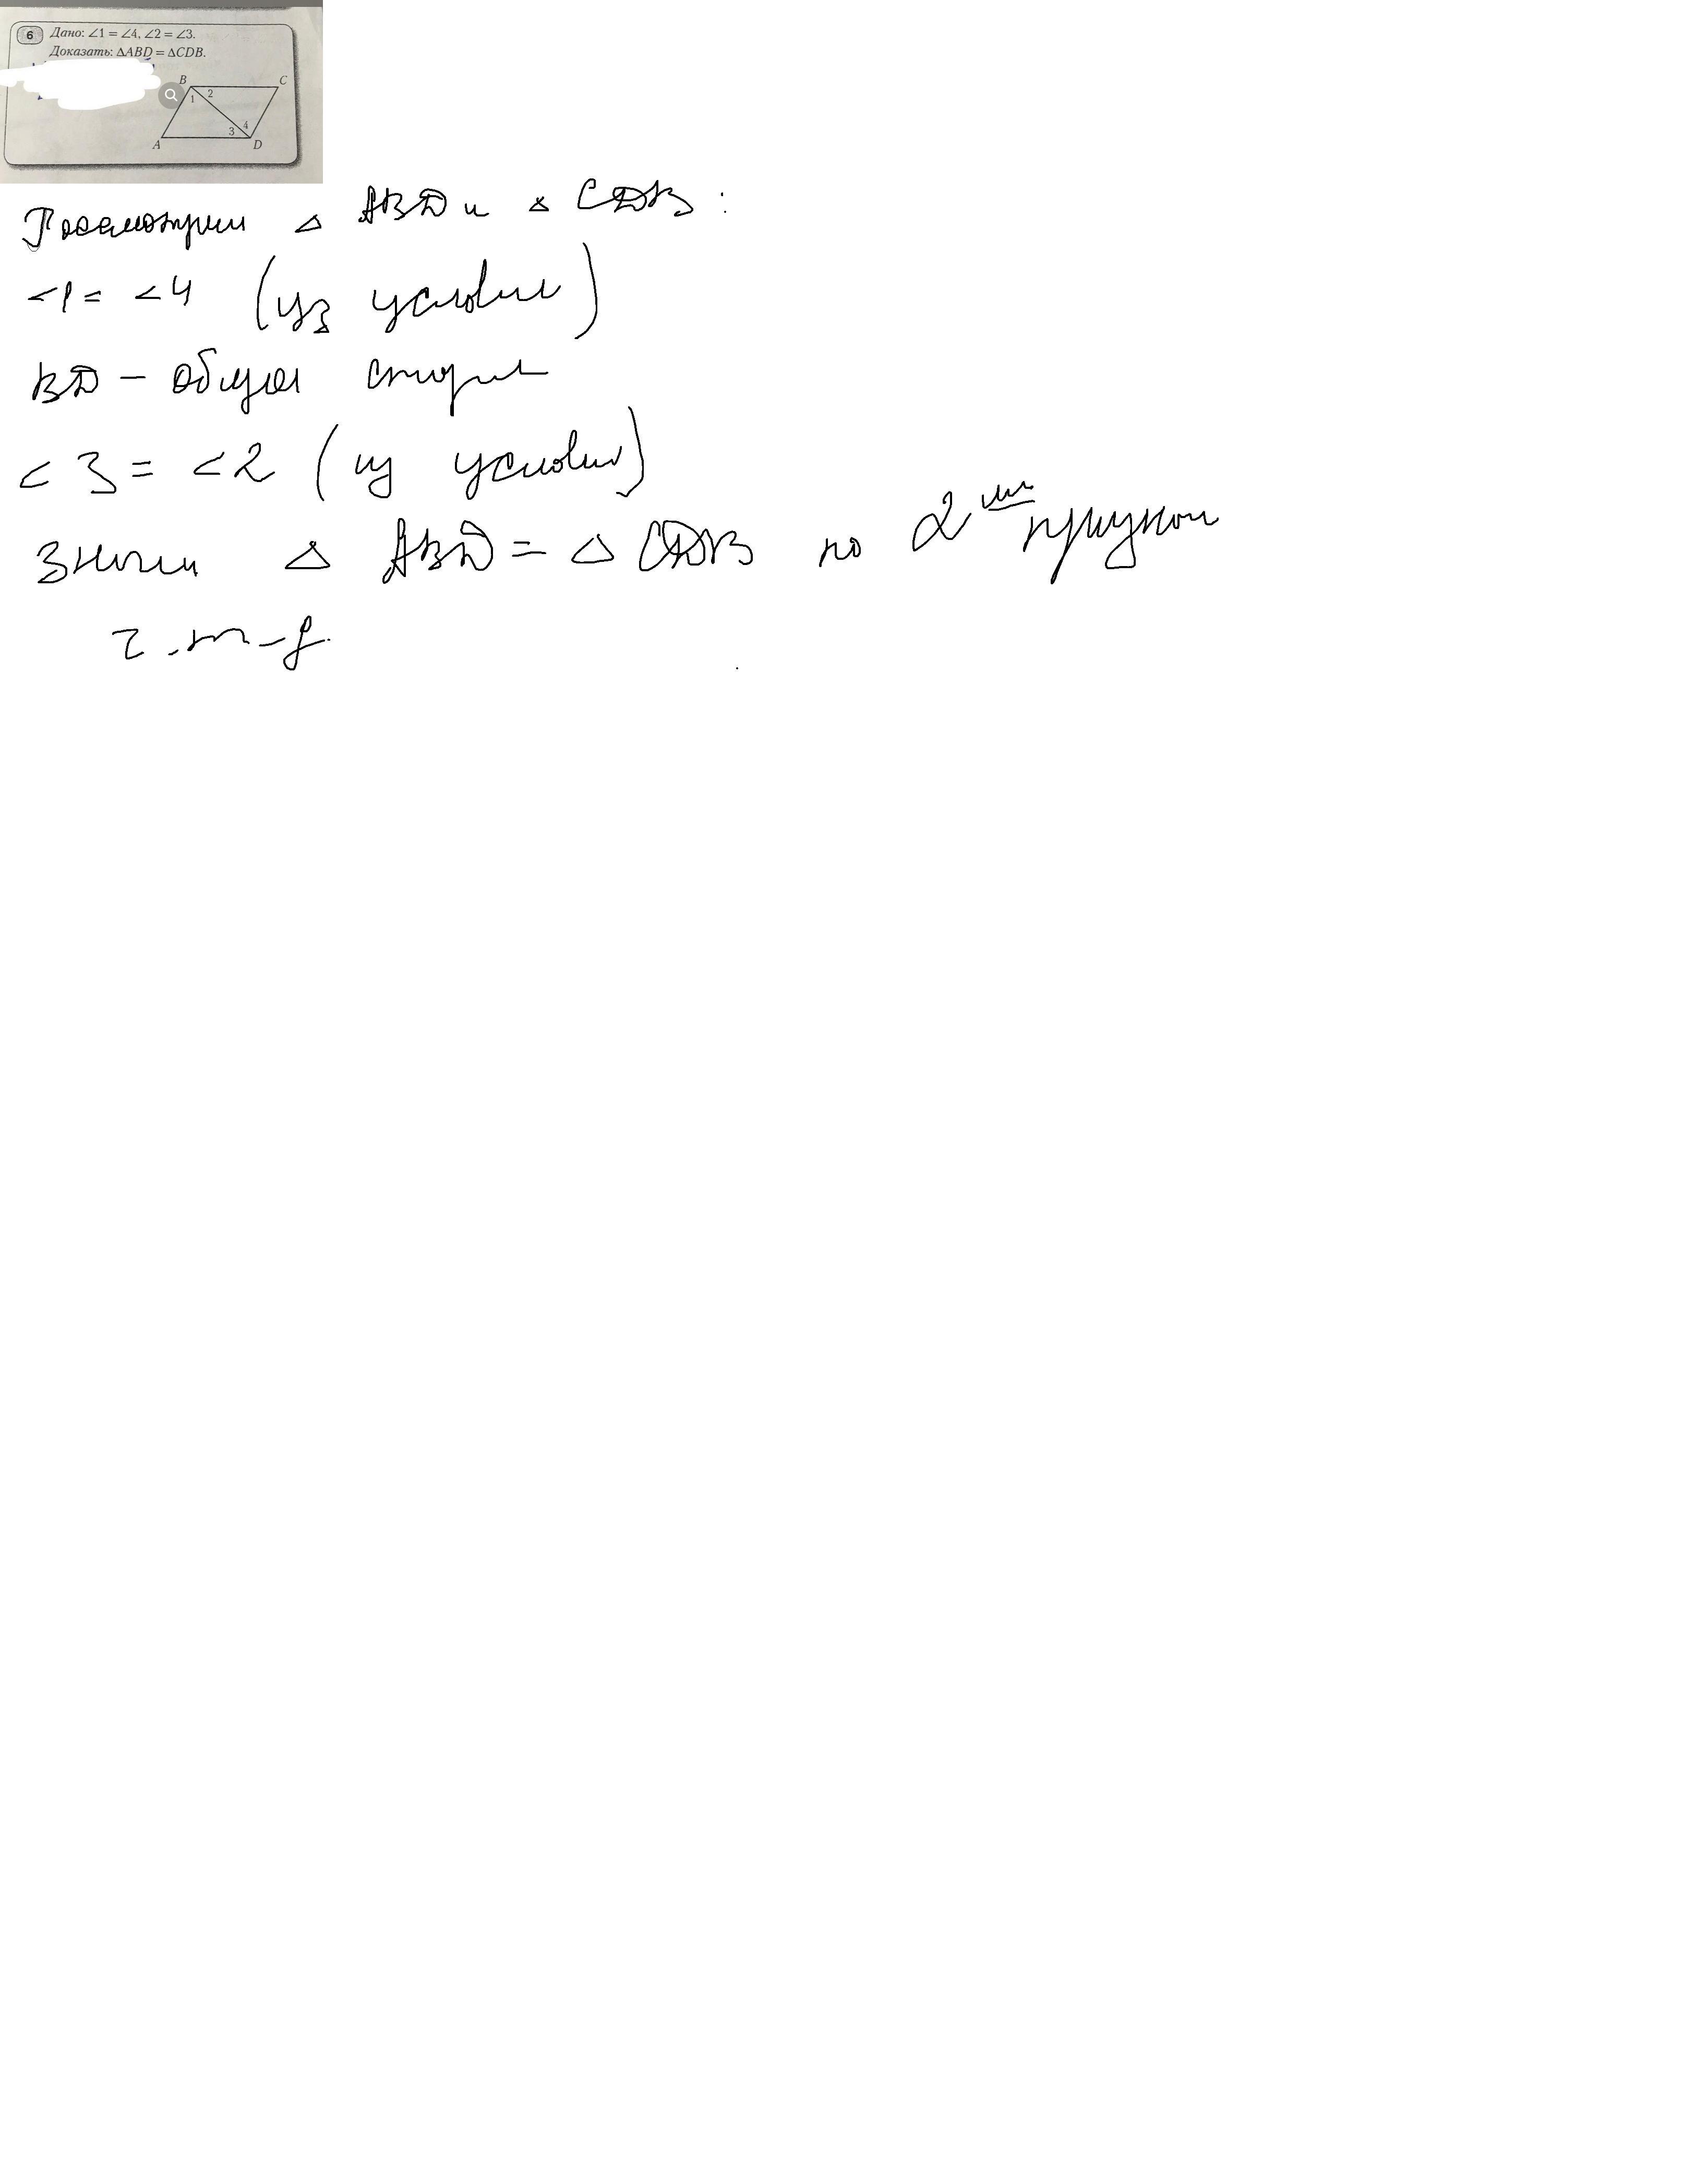 6 Дано: ∠1 = ∠4, ∠2 = ∠3.
Доказать: ΔABD = ΔCDB.
B C
1 2
3 4
A D
Рассмотрим Δ ABD и Δ CDB :
<1 = <4 (из условия)
BD – общая сторона
<3 = <2 (из условия)
Значит Δ ABD = Δ CDB по 2ому признаку
ч.т-д.